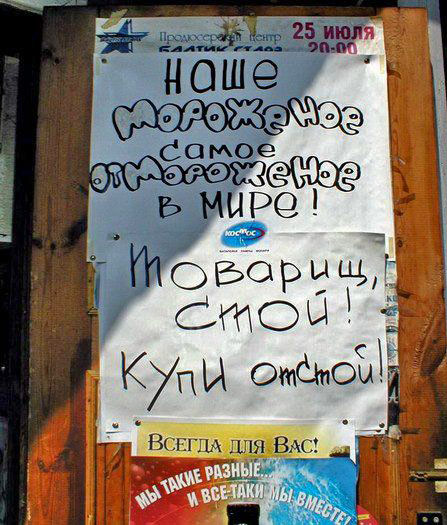 Продюсерский центр
БАЛТИК СТАР
25 ИЮЛЯ
20:00
наше
мороженое
самое
отмороженое
в мире!
космос
Товарищ,
стой!
Купи отстой!
ВСЕГДА ДЛЯ ВАС!
МЫ ТАКИЕ РАЗНЫЕ...
И ВСЕ-ТАКИ МЫ ВМЕСТЕ!